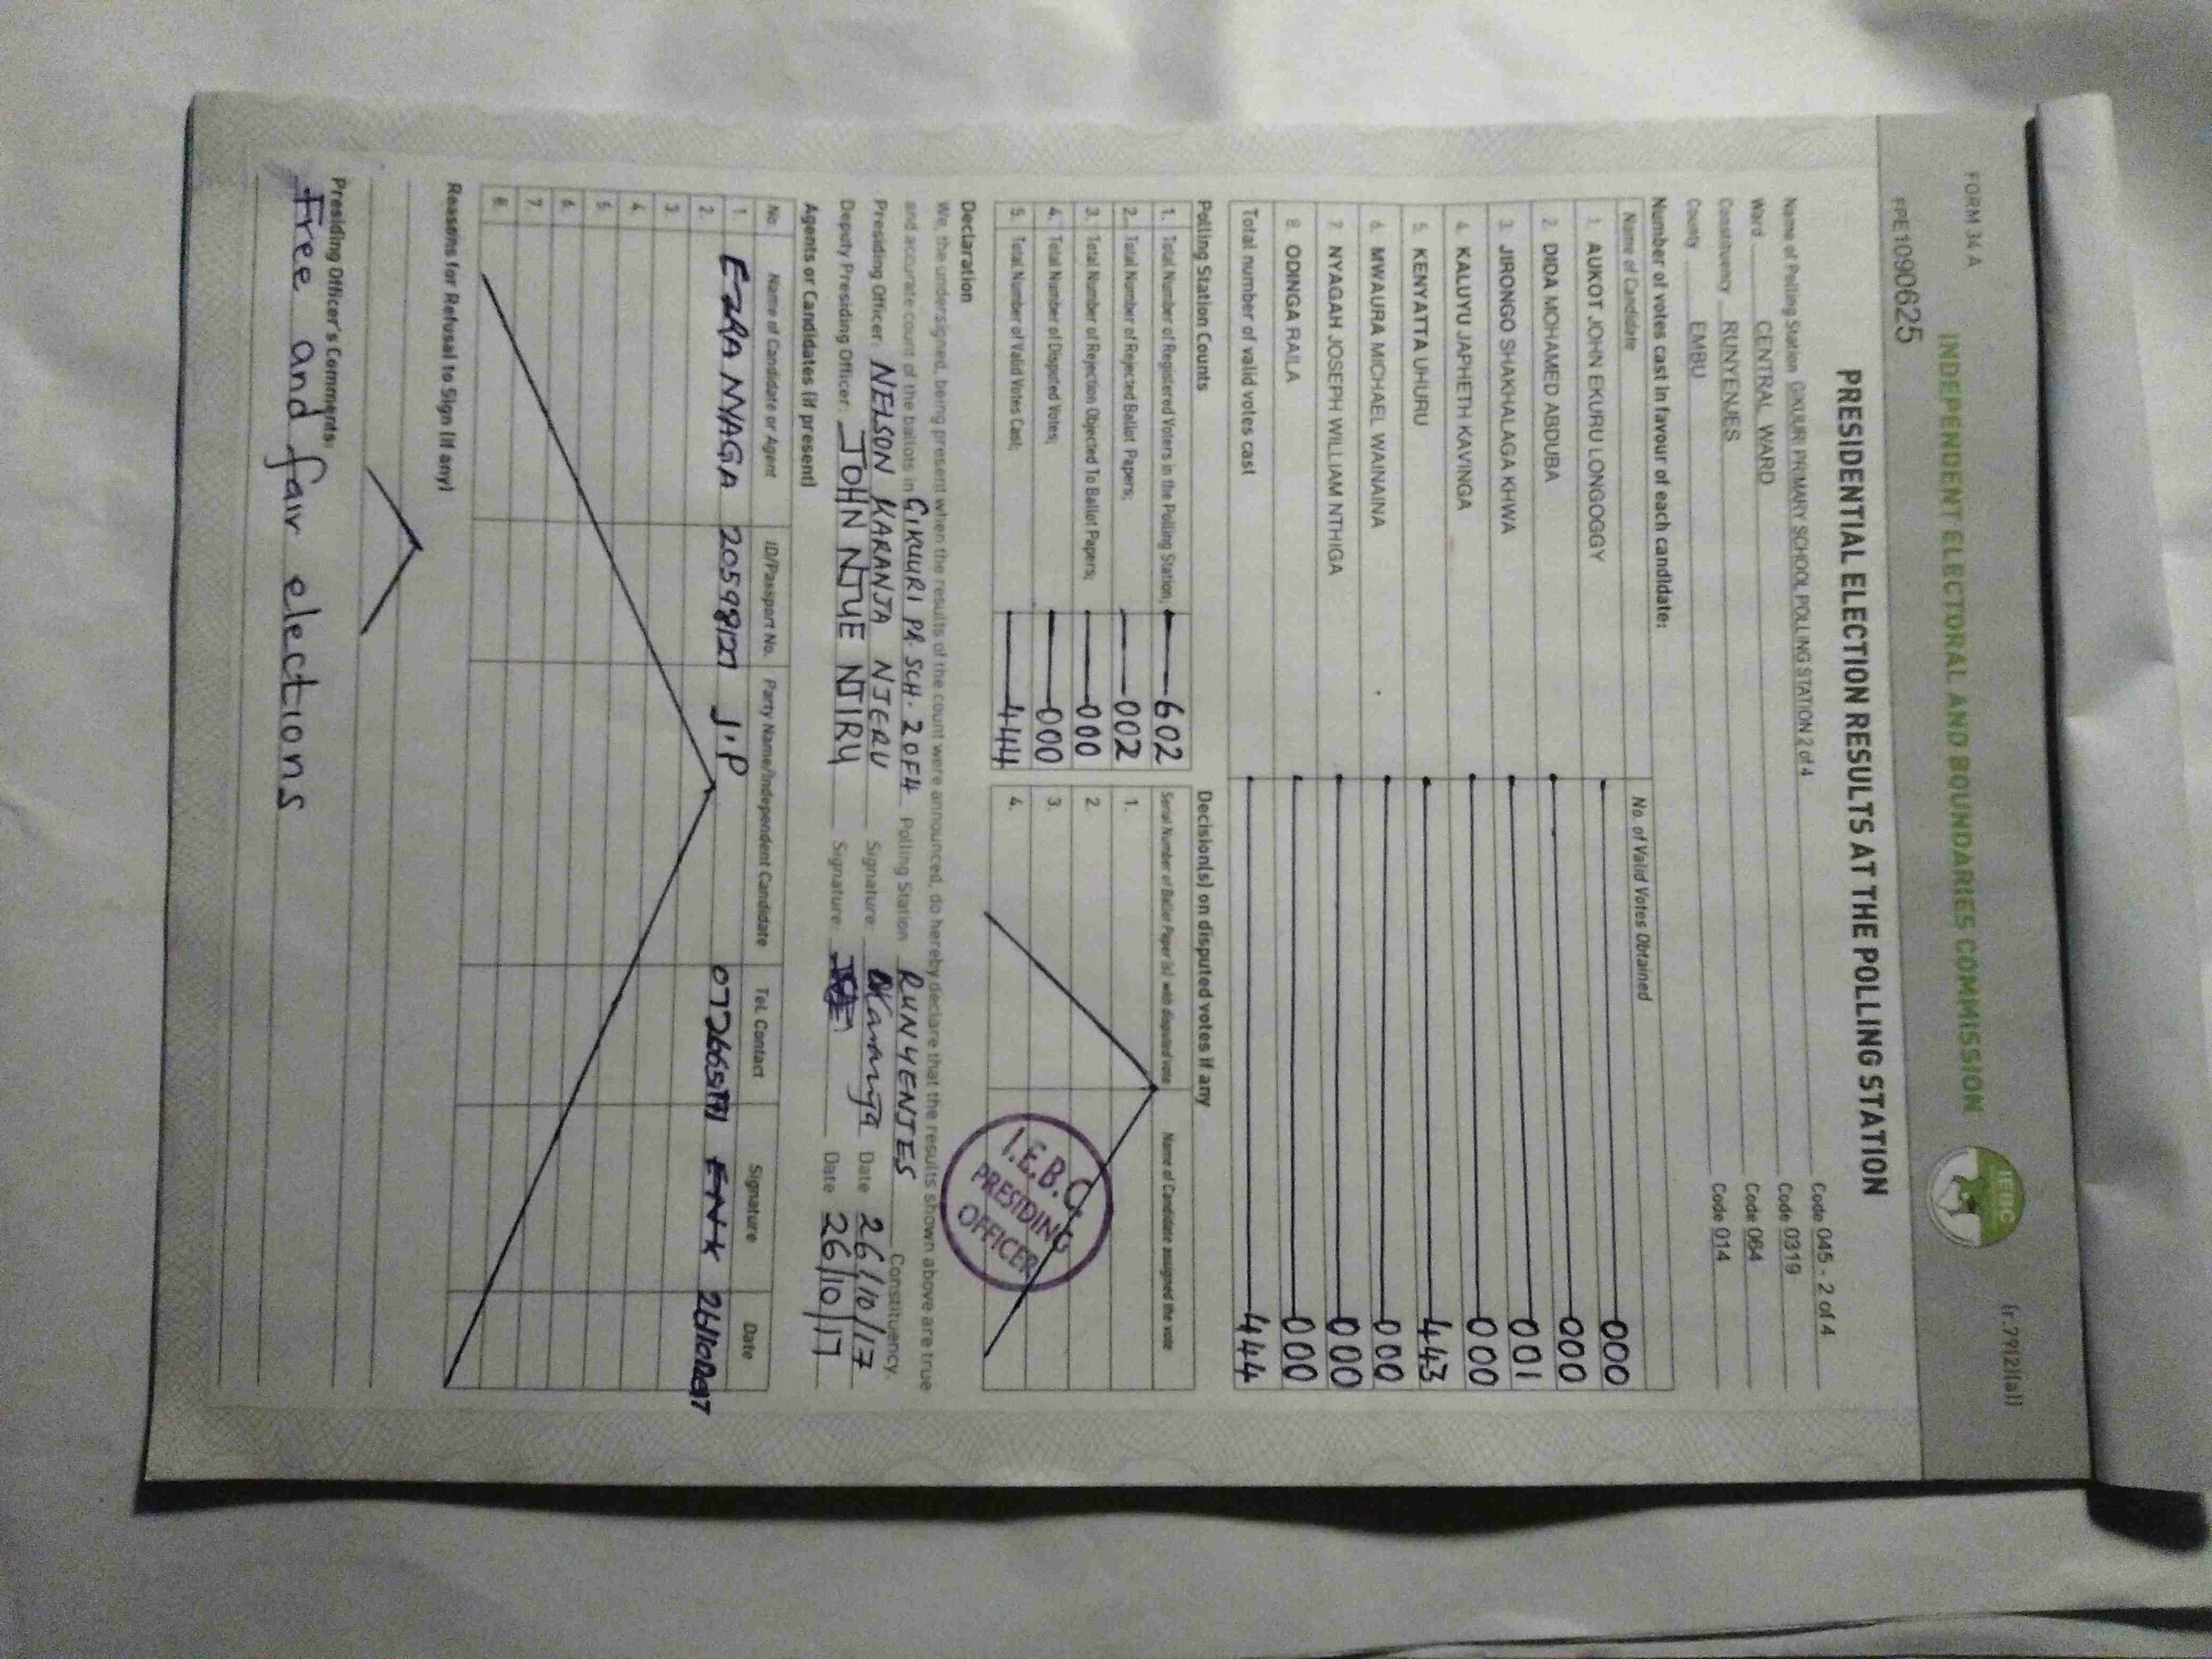 FORM 34 A
(r.79(2)(a))
INDEPENDENT ELECTORAL AND BOUNDARIES COMMISSION
IEBC
FPE1090625
PRESIDENTIAL ELECTION RESULTS AT THE POLLING STATION
Name of Polling Station GIKUURI PRIMARY SCHOOL POLLING STATION 2 of 4 Code 045 - 2 of 4
Ward CENTRAL WARD Code 0319
Constituency RUNYENJES Code 064
County EMBU Code 014
Number of votes cast in favour of each candidate:
Name of Candidate No. of Valid Votes Obtained
1. AUKOT JOHN EKURU LONGOGGY 000
2. DIDA MOHAMED ABDUBA 000
3. JIRONGO SHAKHALAGA KHWA 001
4. KALUYU JAPHETH KAVINGA 000
5. KENYATTA UHURU 443
6. MWAURA MICHAEL WAINAINA 000
7. NYAGAH JOSEPH WILLIAM NTHIGA 000
8. ODINGA RAILA 000
Total number of valid votes cast 444
Polling Station Counts
1. Total Number of Registered Voters in the Polling Station; 602
2. Total Number of Rejected Ballot Papers; 002
3. Total Number of Rejection Objected To Ballot Papers; 000
4. Total Number of Disputed Votes; 000
5. Total Number of Valid Votes Cast; 444
Decision(s) on disputed votes if any
Serial Number of Ballot Paper (s) with disputed vote Name of Candidate assigned the vote
1.
2.
3.
4.
I.E.B.C.
PRESIDING
OFFICER
Declaration
We, the undersigned, being present when the results of the count were announced, do hereby declare that the results shown above are true
and accurate count of the ballots in GIKUURI PR SCH. 2 OF 4 Polling Station RUNYENJES Constituency
Presiding Officer: NELSON KARANJA NJERU Signature: NKaranja Date 26/10/17
Deputy Presiding Officer: JOHN NJUE NJIRU Signature: Date 26/10/17
Agents or Candidates (if present)
No Name of Candidate or Agent ID/Passport No. Party Name/Independent Candidate Tel. Contact Signature Date
1. EZRA NYAGA J.P
2.
3.
4.
5.
6.
7.
8.
Reasons for Refusal to Sign (if any)
Presiding Officer's Comments:
Free and fair elections